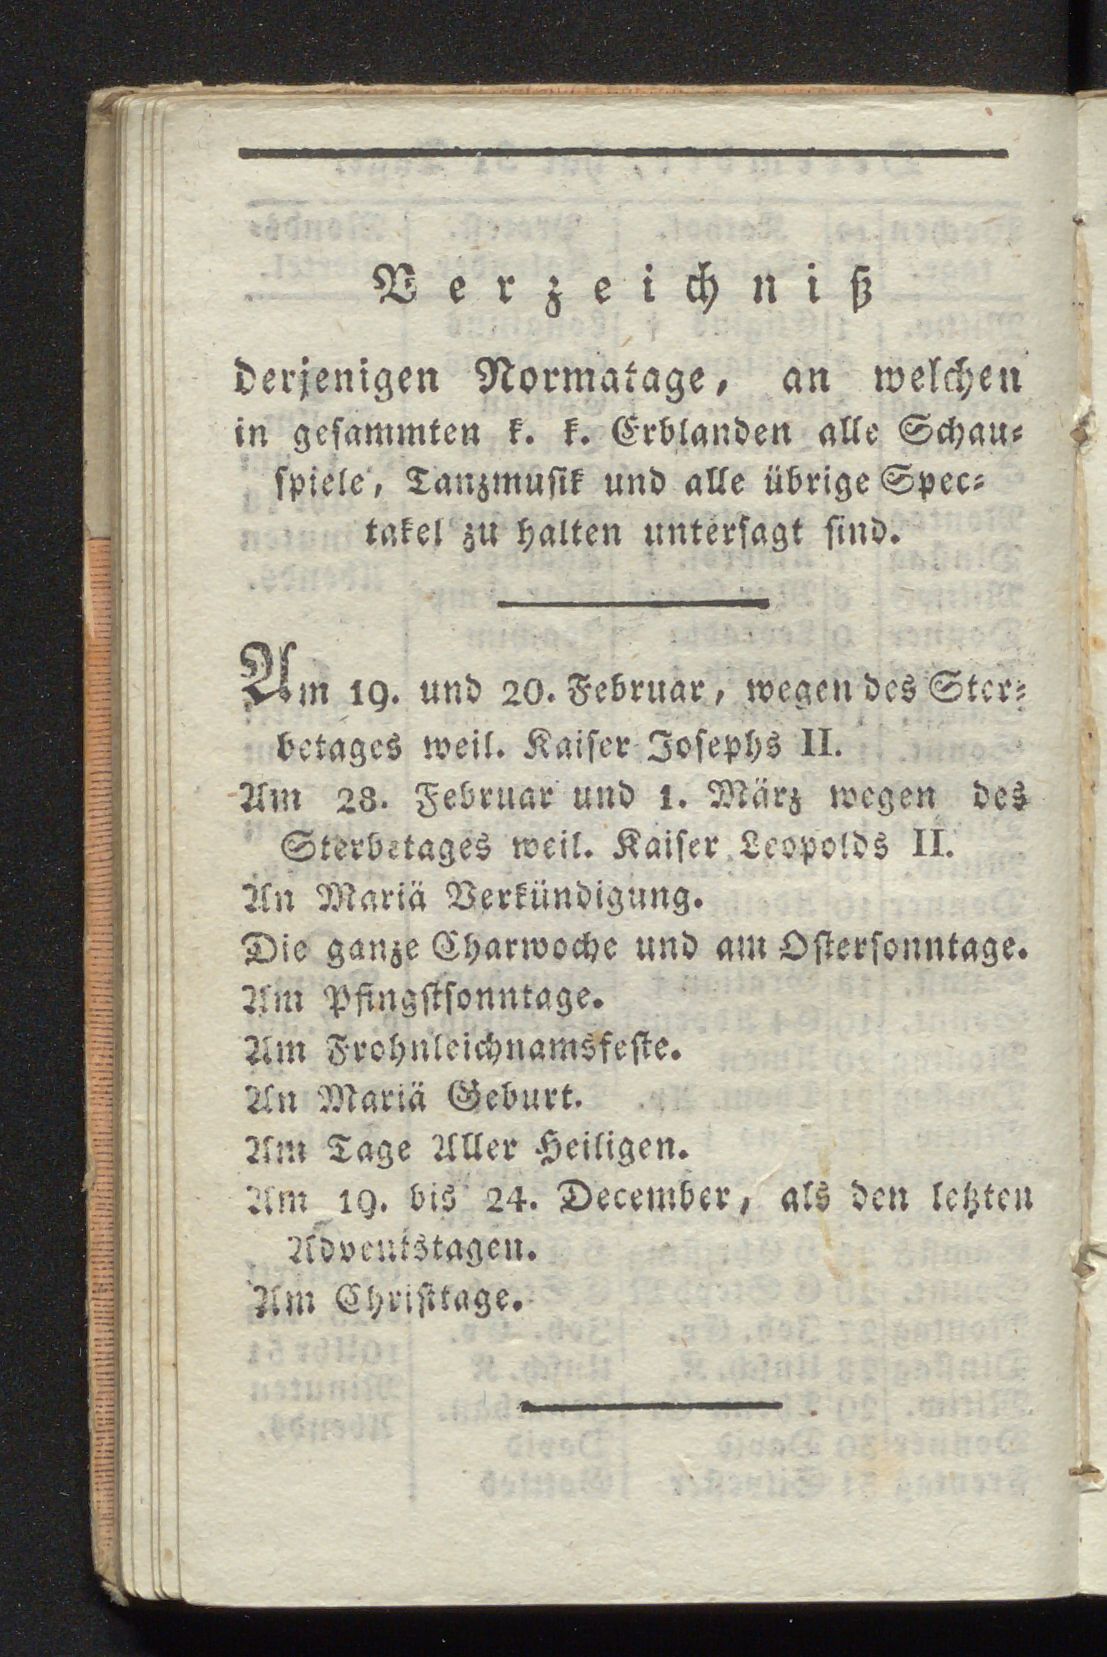 Verzeichniß
derjenigen Normatage, an welchen
in gesammten k. k. Erblanden alle Schau-
spiele, Tanzmusik und alle übrige Spec-
takel zu halten untersagt sind.
Am 19. und 20. Februar, wegen des Ster-
betages weil. Kaiser Josephs II.
Am 28. Februar und 1. März wegen des
Sterbetages weil. Kaiser Leopolds II.
An Mariä Verkündigung.
Die ganze Charwoche und am Ostersonntage.
Am Pfingstsonntage.
Am Frohnleichnamsfeste.
An Mariä Geburt.
Am Tage Aller Heiligen.
Am 19. bis 24. December, als den letzten
Adventstagen.
Am Christtage.